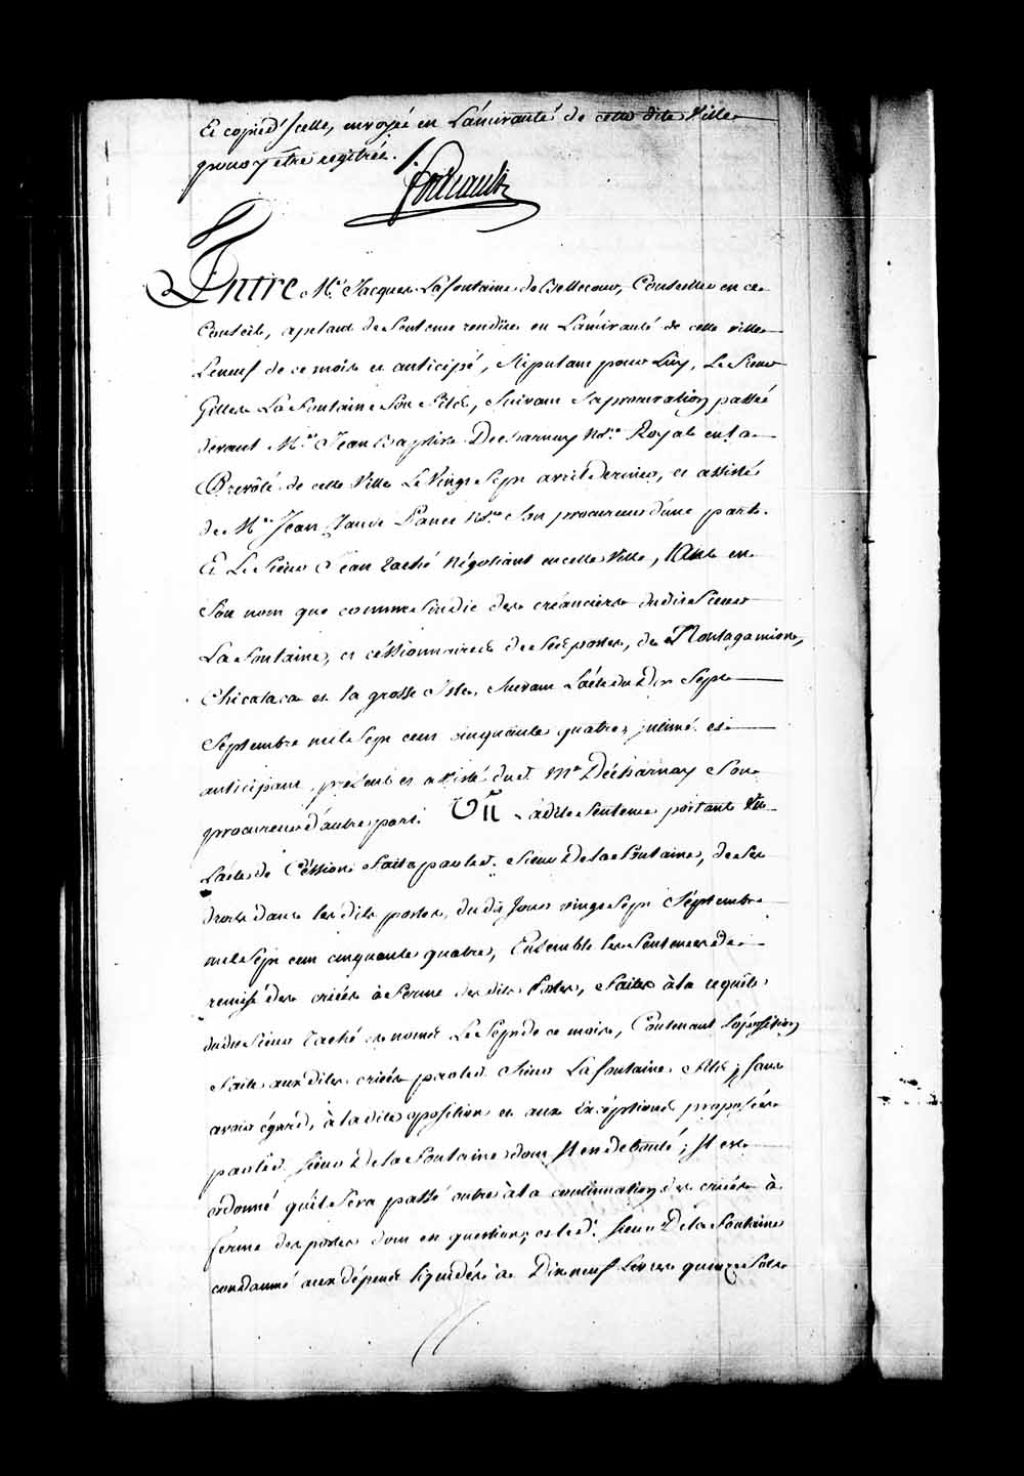 Et copie d'Icelle, envoyée en L'amirauté de cette dite Ville
pour y être registrée. /.
Foucault
Entre Me. Jacques Lafontaine de Bellecour, Conseiller en ce
Conseil, apelant de Sentence rendüe en L'amirauté de cette ville
Le neuf de ce mois et anticipé, stipulant pour Luy, Le Sieur
Gilles La Fontaine Son Fils, Suivant Sa procuration passée
devant Me. Jean Baptiste Decharnay Nore. Royal en La
Prevôté de cette Ville Le Vingt Sept avril dernier, et assisté
de Me. Jean Claude Panet Nore. Son procureur d'une part.
Et Le Sieur Jean Taché Négotiant en cette Ville, tant en
Son nom que comme Sindic des créanciers dudit Sieur
La Fontaine, et céssionnaire de Ses postes, de Montagamion,
Chicataca et la grosse Isle, Suivant L'acte du Vingt Sept
Septembre mil Sept cent cinquante quatre, intimé et
anticipant, présent et assisté dud. Me Décharnay Son
procureur d'autre part. Vû Ladite Sentence portant Vu
L'acte de Céssion Fait par led. Sieur De la Fontaine, de Ses
droits dans les dits postes, du dit Jour vingt Sept Séptembre
mil Sept cent cinquante quatre, Ensemble les Sentences de
remise des criées à Ferme des dits Postes, Faites à la requête
dudit Sieur Taché ez noms Le Sept de ce mois, Contenant L'oposition
Faite aux dites criées par led. Sieur La fontaine Fils; sans
avoir égard, à la dite oposition et aux Excéptions proposées
par led. Sieur De la Fontaine dont Il en débouté; Il est
ordonné qu'il Sera passé outre à La continuation des criées à
ferme des postes dont en question; et led. Sieur De la Fontaine
condamné aux dépens liquidés à Dix neuf Livres quinze Sols